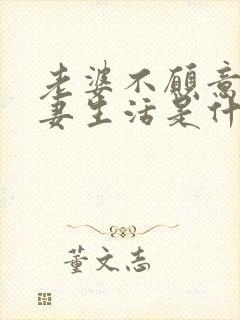 老婆不愿意
妻生活是什
董文志